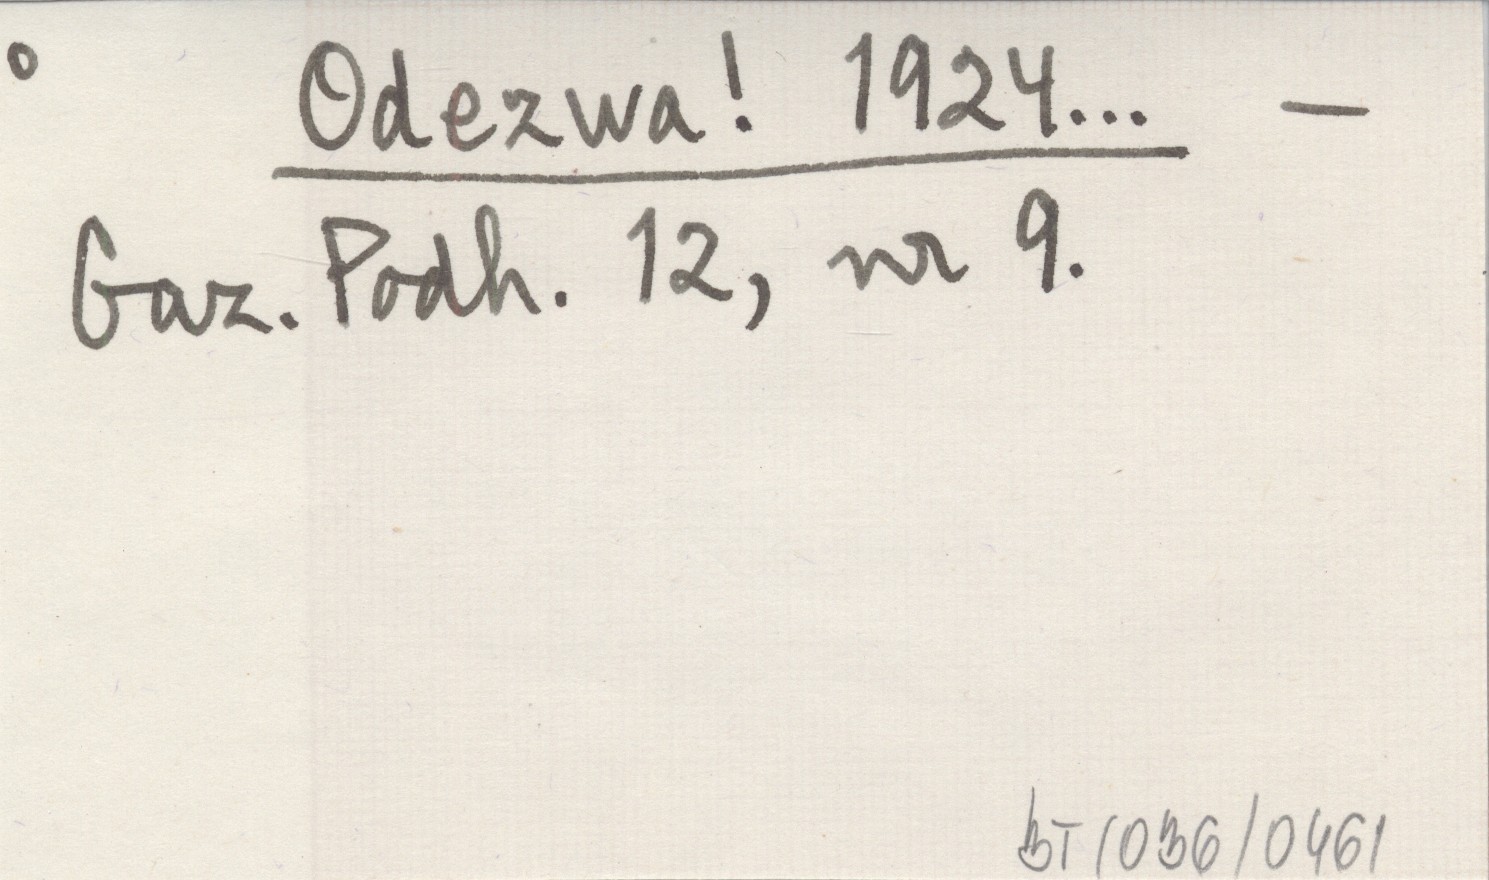 ° Odezwa! 1924... —
Gaz. Podh. 12, nr 9.
BT/036/0461